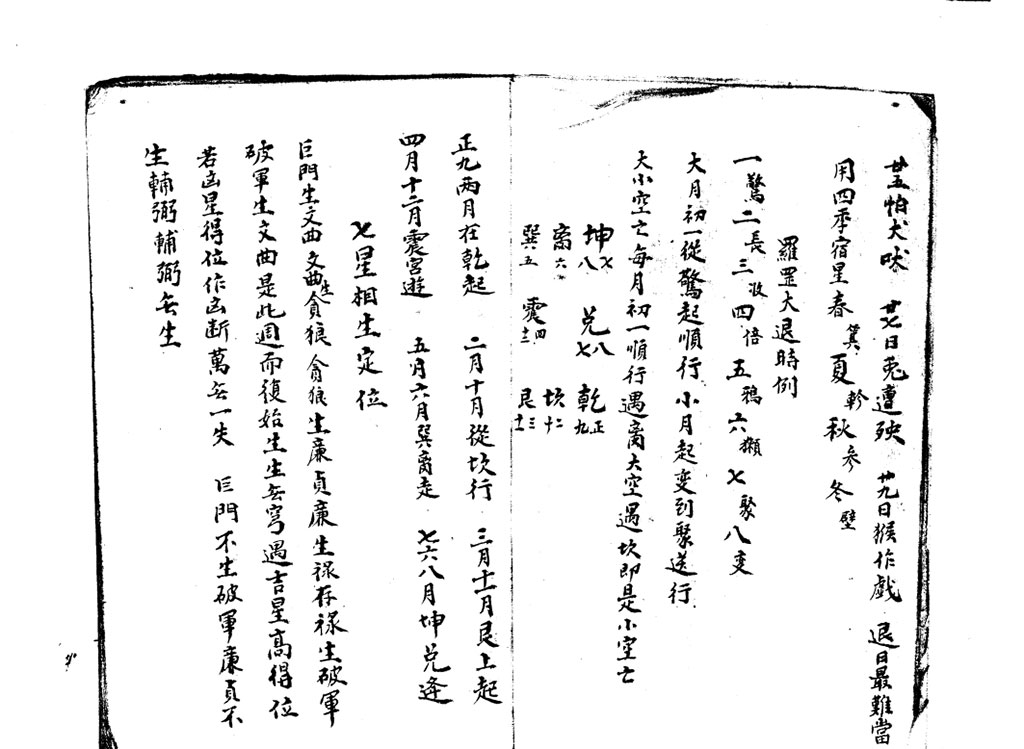 廿五怕犬吠 廿七日兎遭殃 廿九日猴作戲 退日最難當
用四季宿星春箕夏軫秋參冬壁
羅罡大退時例
一驚二長三汝四倍五鴉六獺七聚八变
大月初一從驚起順行小月起变到聚送行
大小空亡每月初一順行遇离大空遇坎即是小空亡
坤七八 兑八七 乾正九
离六 坎十二
巽五 震四十二 艮三十一
正九两月在乾起 二月十月從坎行 三月十一月艮上起
四月十二月震宮遊 五月六月巽离走 七六八月坤兑逢
七星相生定位
巨門生文曲文曲生貪狼貪狼生廉貞廉生禄存禄生破軍
破軍生文曲是此週而復始生生无穹遇吉星高得位
若凶星得位作凶断萬无一失 巨門不生破軍廉貞不
生輔弼輔弼无生